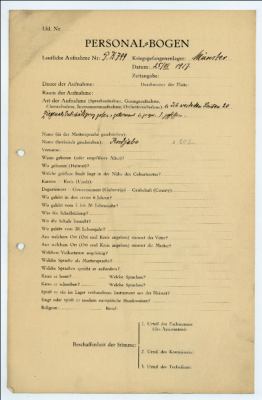 Lfd. Nr.
PERSONAL-BOGEN
Lautliche Aufnahme Nr.: P.K. 799 Kriegsgefangenenlager: Münster
Datum: 1917
Zeitangabe:
Dauer der Aufnahme: Durchmesser der Platte:
Raum der Aufnahme:
Art der Aufnahme (Sprechaufnahme, Gesangsaufnahme,
Choraufnahme, Instrumentenaufnahme, Orchesteraufnahme):
Name (in der Muttersprache geschrieben):
Name (lateinisch geschrieben):
Vorname:
Wann geboren (oder ungefähres Alter)?
Wo geboren (Heimat)?
Welche größere Stadt liegt in der Nähe des Geburtsortes?
Kanton - Kreis (Ujedz):
Department - Gouvernement (Gubernija) - Grafschaft (County):
Wo gelebt in den ersten 6 Jahren?
Wo gelebt vom 7. bis 20. Lebensjahr?
Was für Schulbildung?
Wo die Schule besucht?
Wo gelebt vom 20. Lebensjahr?
Aus welchem Ort (Ort und Kreis angeben) stammt der Vater?
Aus welchem Ort (Ort und Kreis angeben) stammt die Mutter?
Welchem Volksstamm angehörig?
Welche Sprache als Muttersprache?
Welche Sprachen spricht er außerdem?
Kann er lesen? Welche Sprachen?
Kann er schreiben? Welche Sprachen?
Spielt er ein im Lager vorhandenes Instrument aus der Heimat?
Singt oder spielt er modern europäische Musikweisen?
Religion: Beruf:
1. Urteil des Fachmannes
(des Assistenten):
Beschaffenheit der Stimme:
2. Urteil des Kommissars:
3. Urteil des Technikers: